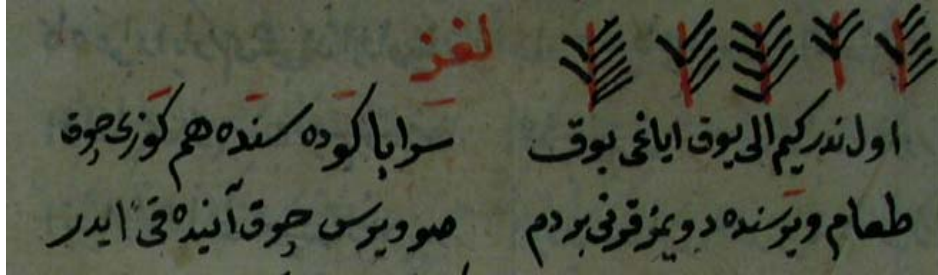 لغز
اول ندر كيم الى يوق اياغى يوق سراپا كوده سنده هم كوزى چوق
طعام ويرسنده دويمز قرنى بردم صو ويرسن چوق آنيده قى ايدر